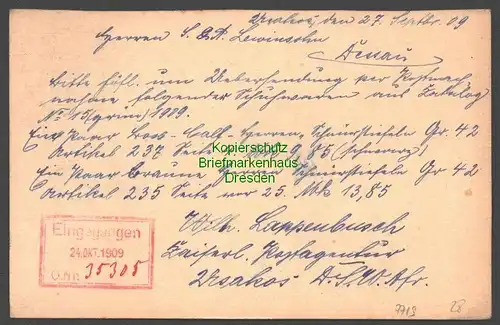 Usakos, den 27. Septbr. 09
Herren S. & R. Lewinsohn
Dessau
Bitte höfl. um Uebersendung per Postnach
nahme folgender Schuhwaren aus Katalog
No 15 (grün) 1909.
Ein Paar Box-Calb-Herren-Schnürstiefeln Gr. 42
Artikel 237 Seite 9,85 (schwarz)
Ein Paar braune Herren Schnürstiefeln Gr 42
Artikel 235 Seite 25. Mk 13,85
Kopierschutz
Briefmarkenhaus
Dresden
Wilh. Lappenbusch
Kaiserl. Postagentur
Usakos D.S.W.Afr.
Eingegangen
24.OKT.1909
O.Nr. 35305
7719